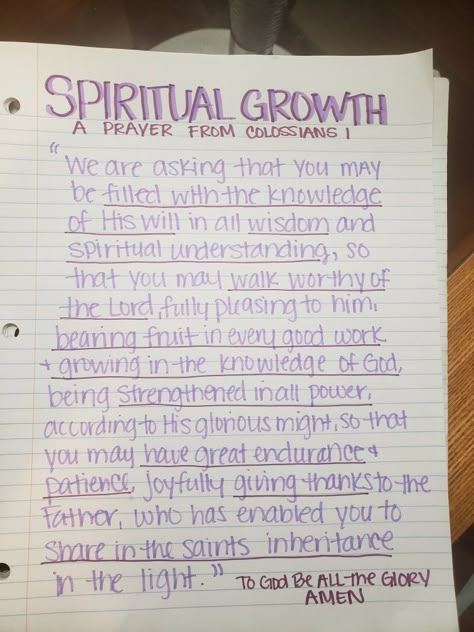 SPIRITUAL GROWTH
A PRAYER FROM COLOSSIANS 1
"We are asking that you may
be filled with the knowledge
of His will in all wisdom and
spiritual understanding, so
that you may walk worthy of
the Lord, fully pleasing to him,
bearing fruit in every good work
+ growing in the knowledge of God,
being strengthened in all power,
according to His glorious might, so that
you may have great endurance +
patience, joyfully giving thanks to the
Father, who has enabled you to
share in the saints inheritance
in the light." TO GOD BE ALL the GLORY
AMEN